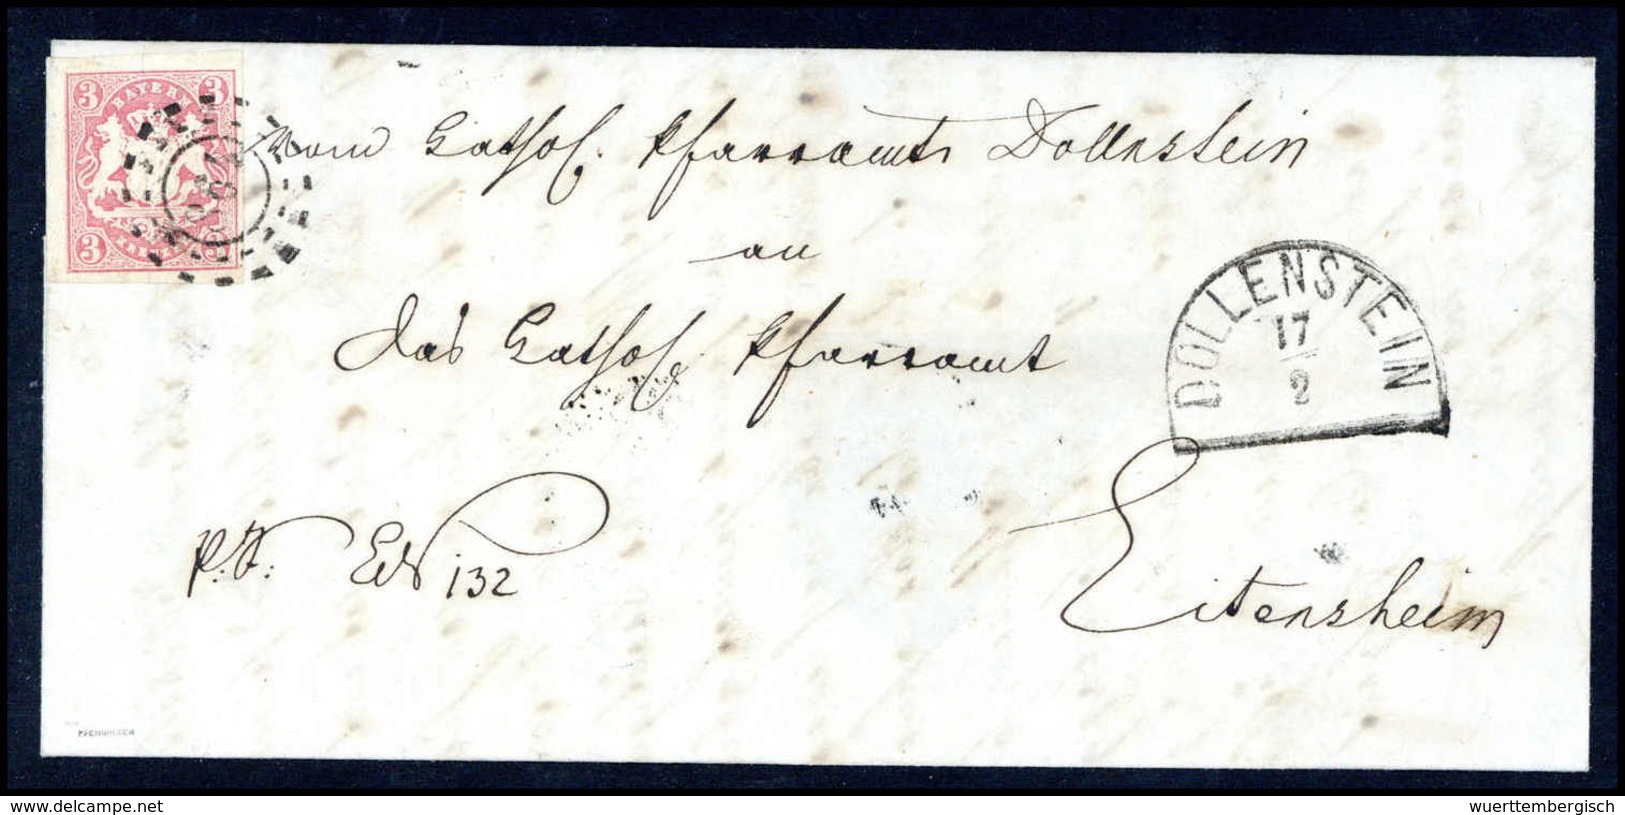 3 BAYERN 3
3 KREUZER 3
vom Kathol. Pfarramte Dollnstein
an
das Kathol. Pfarramt
DOLLENSTEIN
17
2
P. S. Ex 132
Eitensheim
PFENNINGER
© www.delcampe.net
wuerttembergisch